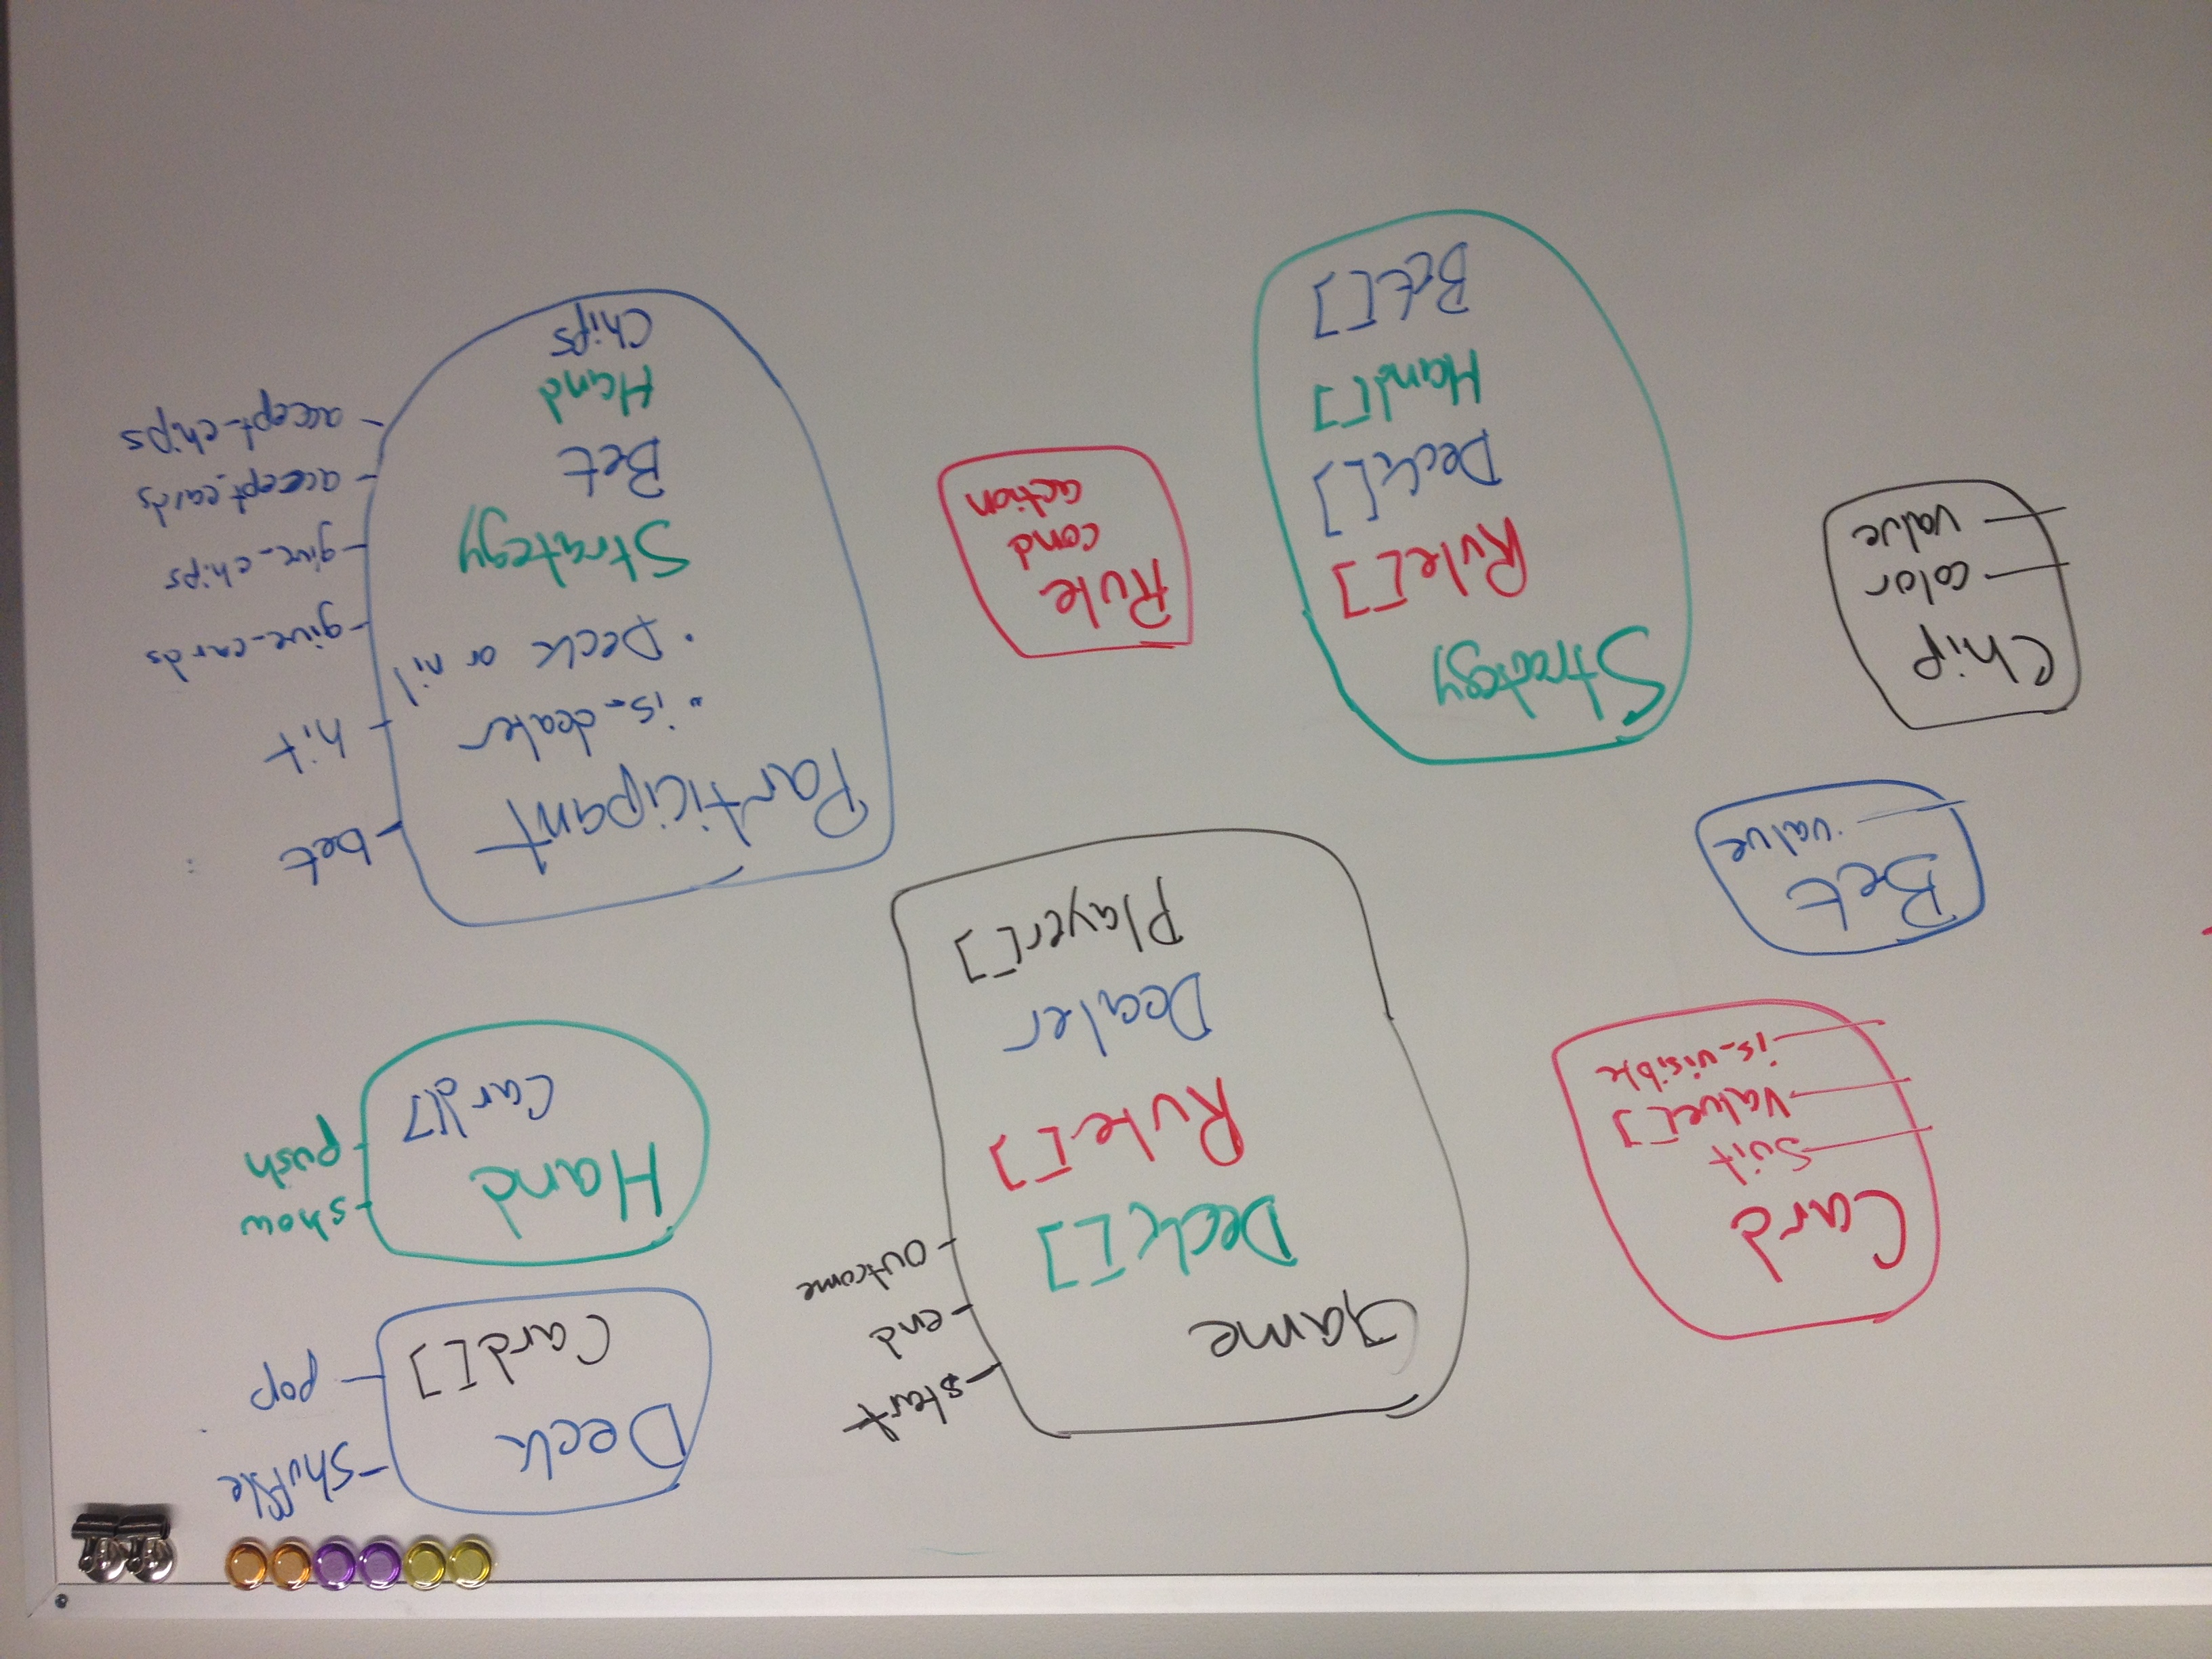 Card
Suit
Value[]
is_visible
Bet
value
Chip
color
value
Game
Deck[]
Rule[]
Dealer
Player[]
start
end
outcome
Strategy
Rule[]
Deck[]
Hand[]
Bet[]
Rule
cond
action
Deck
Card[]
shuffle
pop
Hand
Card[]
show
push
Participant
is_dealer
Deck or nil
Strategy
Bet
Hand
Chips
bet
hit
give_cards
give_chips
accept_cards
accept_chips